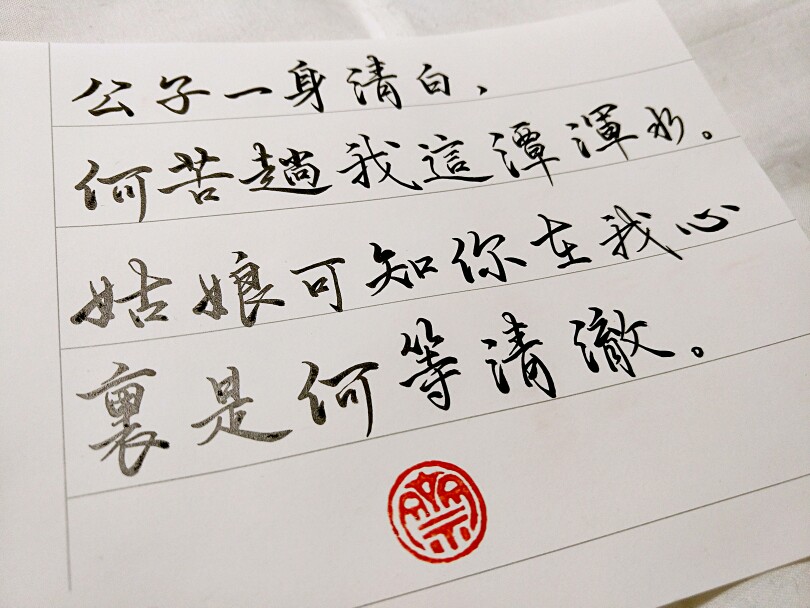 公子一身清白，
何苦趟我這潭渾水。
姑娘可知你在我心
裏是何等清澈。